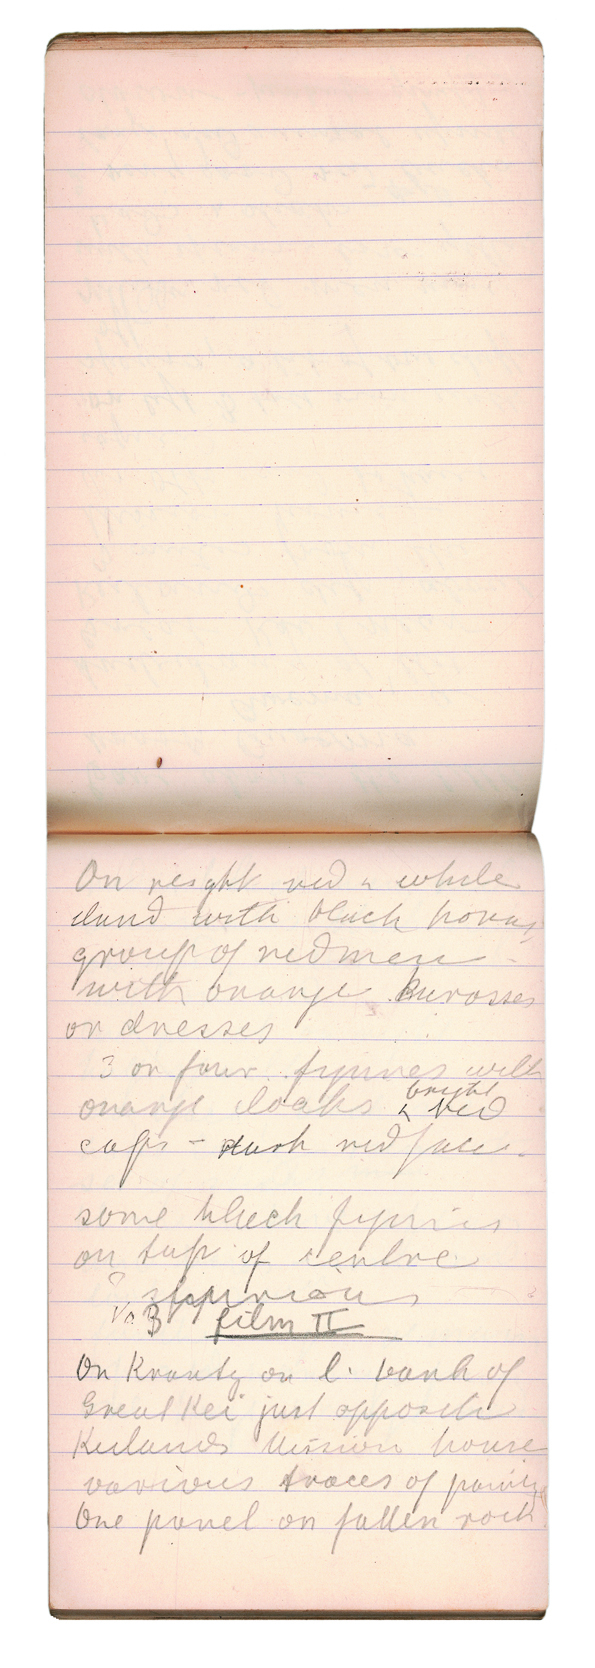 On reight red & white
eland with black horns
group of red men -
with orange Karosses
or dresses
3 or four figures with
orange cloaks bright red
caps - dark red faces.
some black figures
on top of centre
? spurious
No 3 film II
On Krantz on l. bank of
Great Kei just opposite
Mission house
various traces of paintgs
One panel on fallen rock